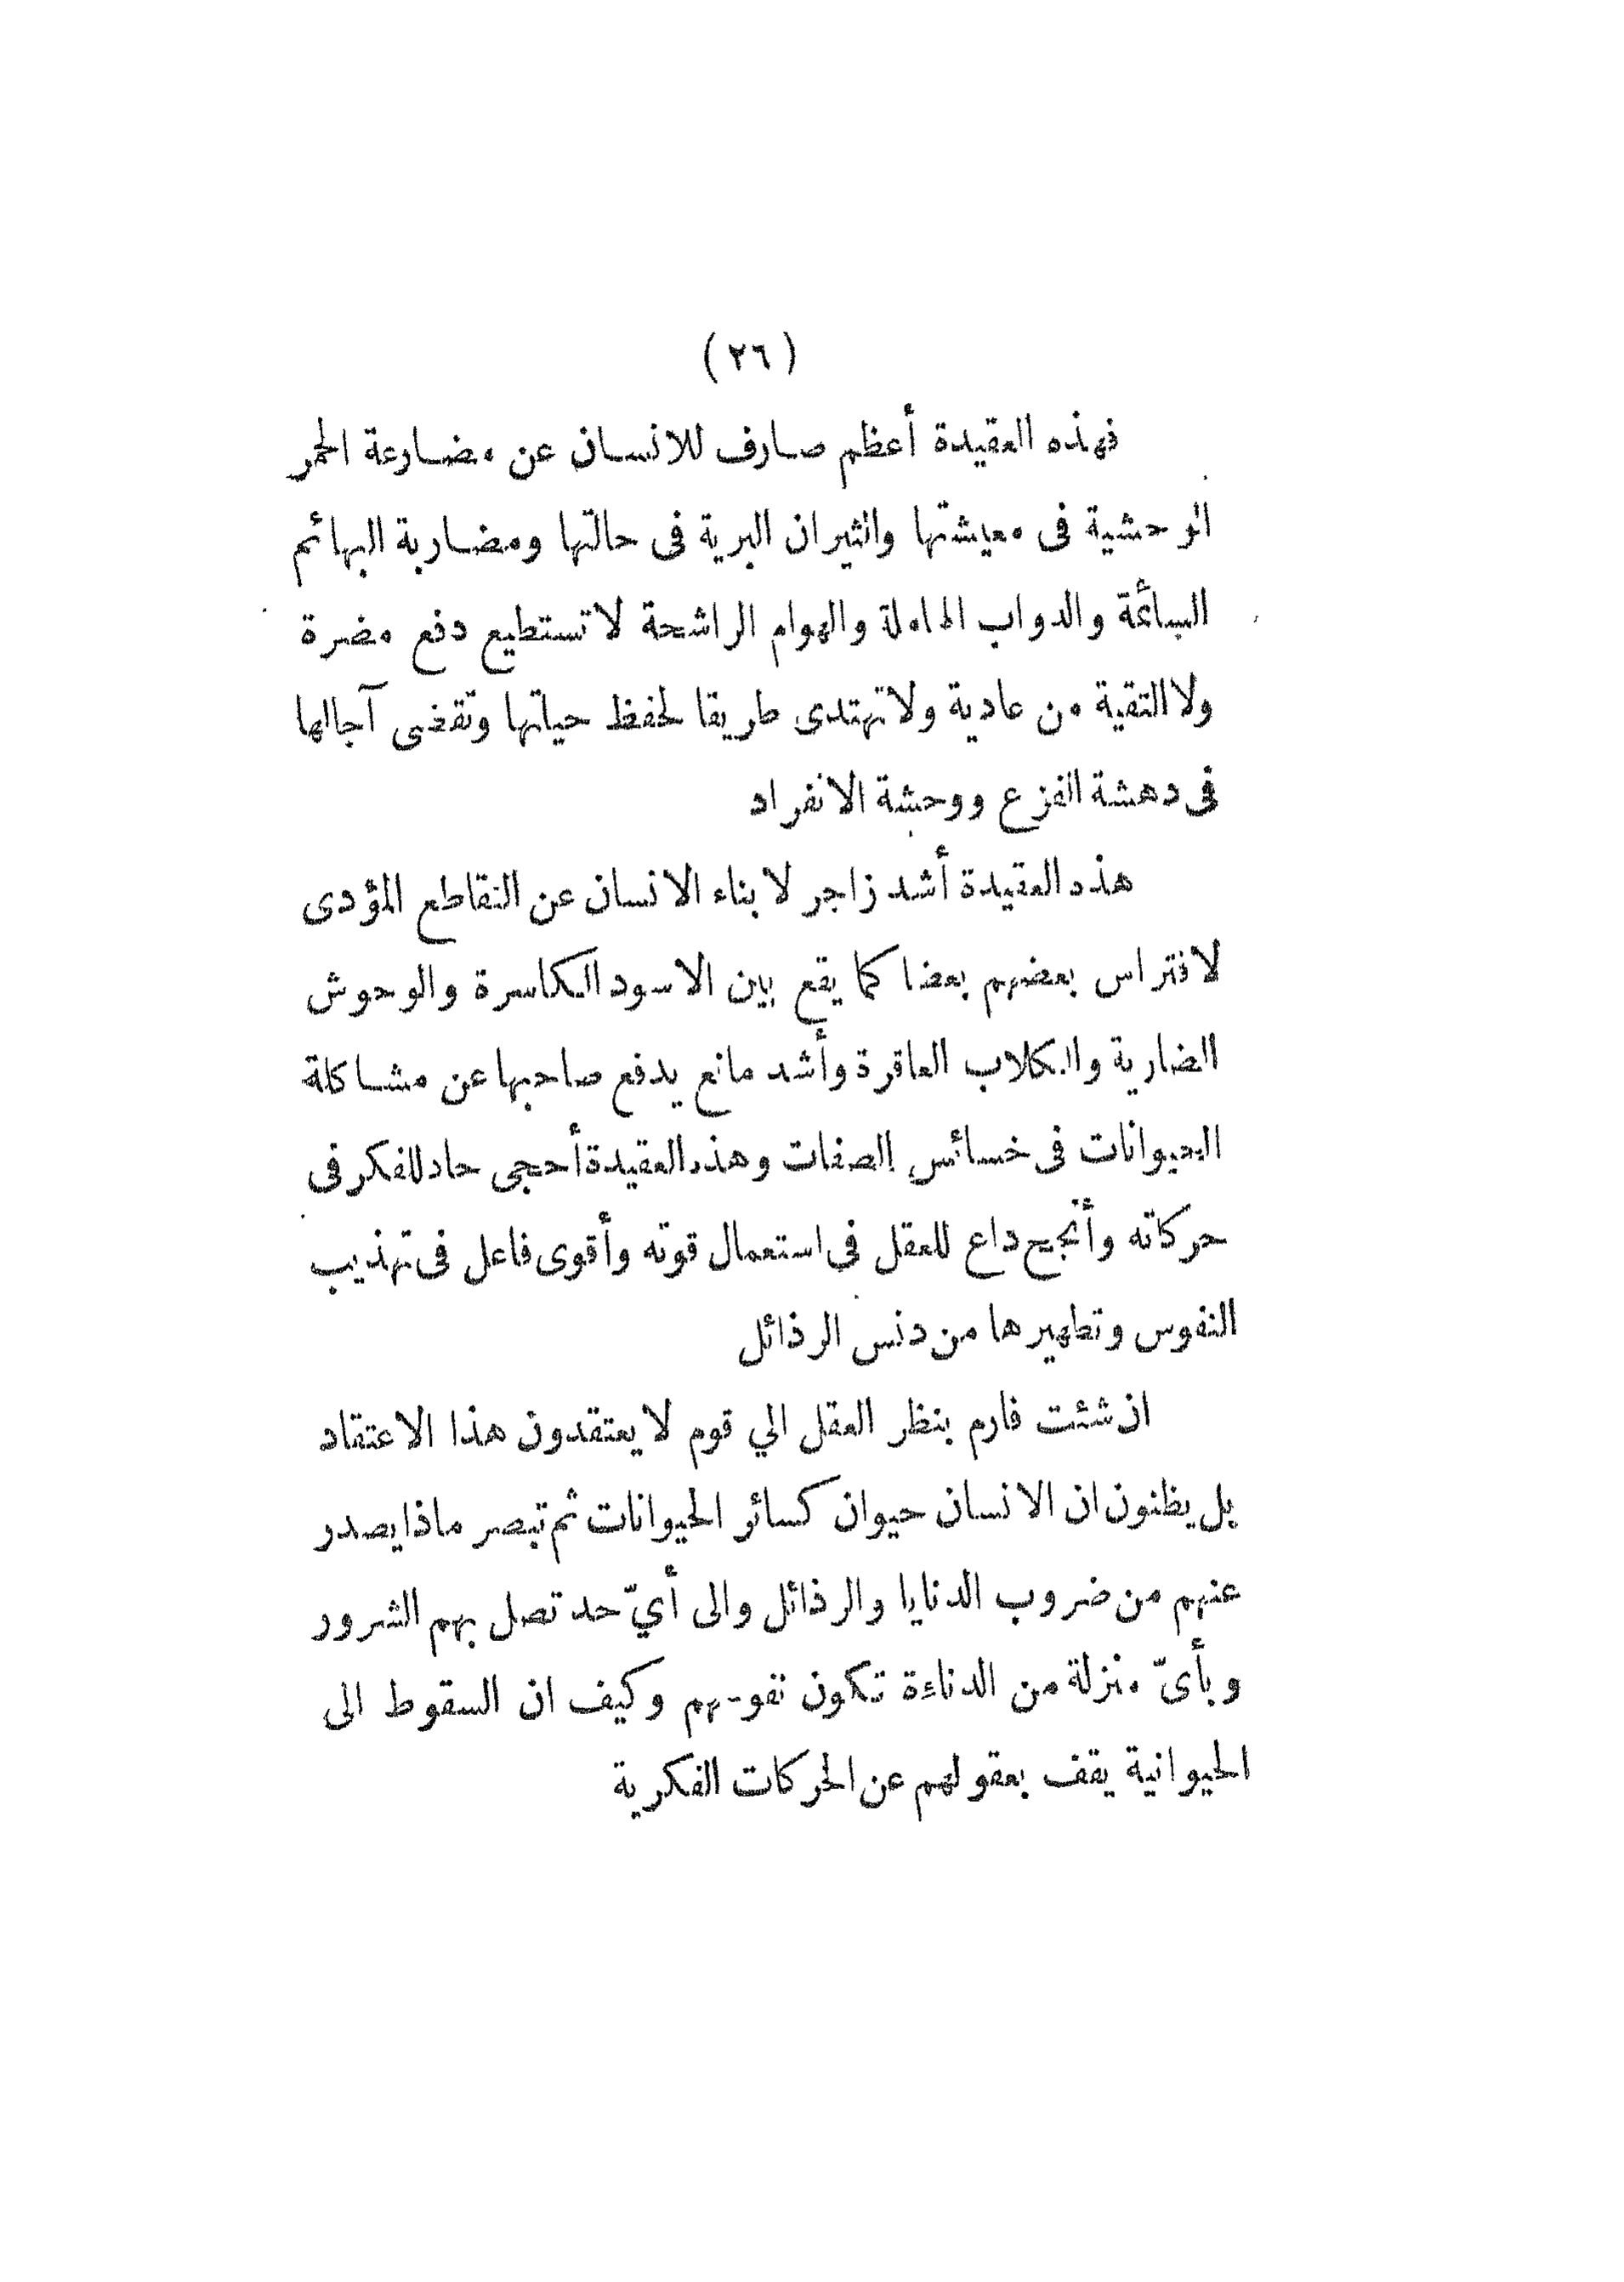 (٢٦)
فهذه العقيدة أعظم صارف للانسان عن مضارعة الحمر
الوحشية فى معيشتها والثيران البرية فى حالتها ومضاربة البهائم
السائمة والدواب الهاملة والهوام الراشحة لا تستطيع دفع مضرة
ولا التقية من عادية ولا تهتدى طريقا لحفظ حياتها وتقضى آجالها
فى دهشة الفزع ووحشة الانفراد
هذه العقيدة أشد زاجر لابناء الانسان عن التقاطع المؤدى
لافتراس بعضهم بعضا كما يقع بين الاسود الكاسرة والوحوش
الضارية والكلاب العاقرة وأشد مانع يدفع صاحبها عن مشاكلة
الحيوانات فى خسائس الصفات وهذه العقيدة أحجى حاد للفكر فى
حركاته وأنجح داع للعقل في استعمال قوته وأقوى فاعل فى تهذيب
النفوس وتطهيرها من دنس الرذائل
ان شئت فارم بنظر العقل الي قوم لا يعتقدون هذا الاعتقاد
بل يظنون ان الانسان حيوان كسائر الحيوانات ثم تبصر ماذا يصدر
عنهم من ضروب الدنايا والرذائل والى أيّ حد تصل بهم الشرور
وبأىّ منزلة من الدناءة تكون نفوسهم وكيف ان السقوط الى
الحيوانية يقف بعقولهم عن الحركات الفكرية